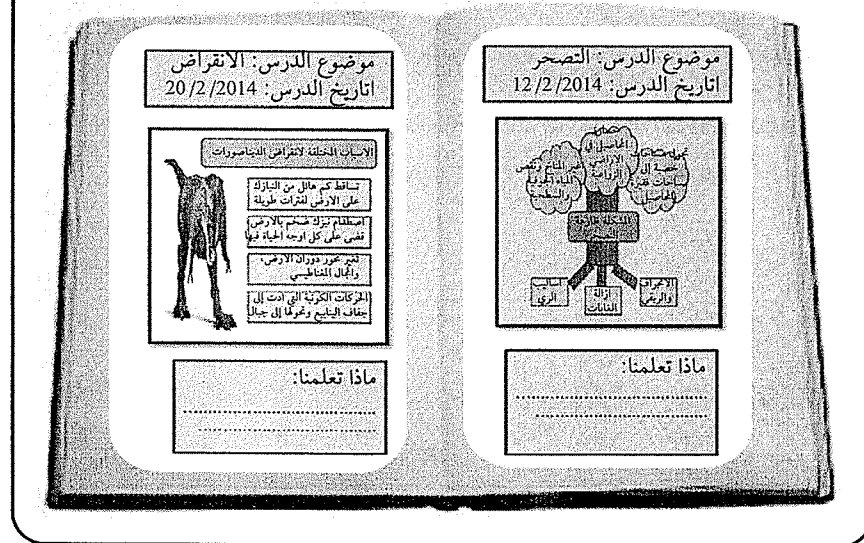 موضوع الدرس: التصحر
اتاريخ الدرس: 12/2/2014
المحاصيل في
الاراضي
الزراعية
المشكلة
أساليب
الري
ازالة
الغابات
الانجراف
ماذا تعلمنا:
موضوع الدرس: الانقراض
اتاريخ الدرس: 20/2/2014
الاسباب المختلفة لانقراض الديناصورات
تساقط كم هائل من النيازك
على الارض لفترات طويلة
اصطدام نيزك ضخم بالارض
قضى على كل اوجه الحياة فيها
تغير محور دوران الارض،
والمجال المغناطيسي
الحركات الكونية التي أدت إلى
جفاف الينابيع وتحولها إلى جبال
ماذا تعلمنا: